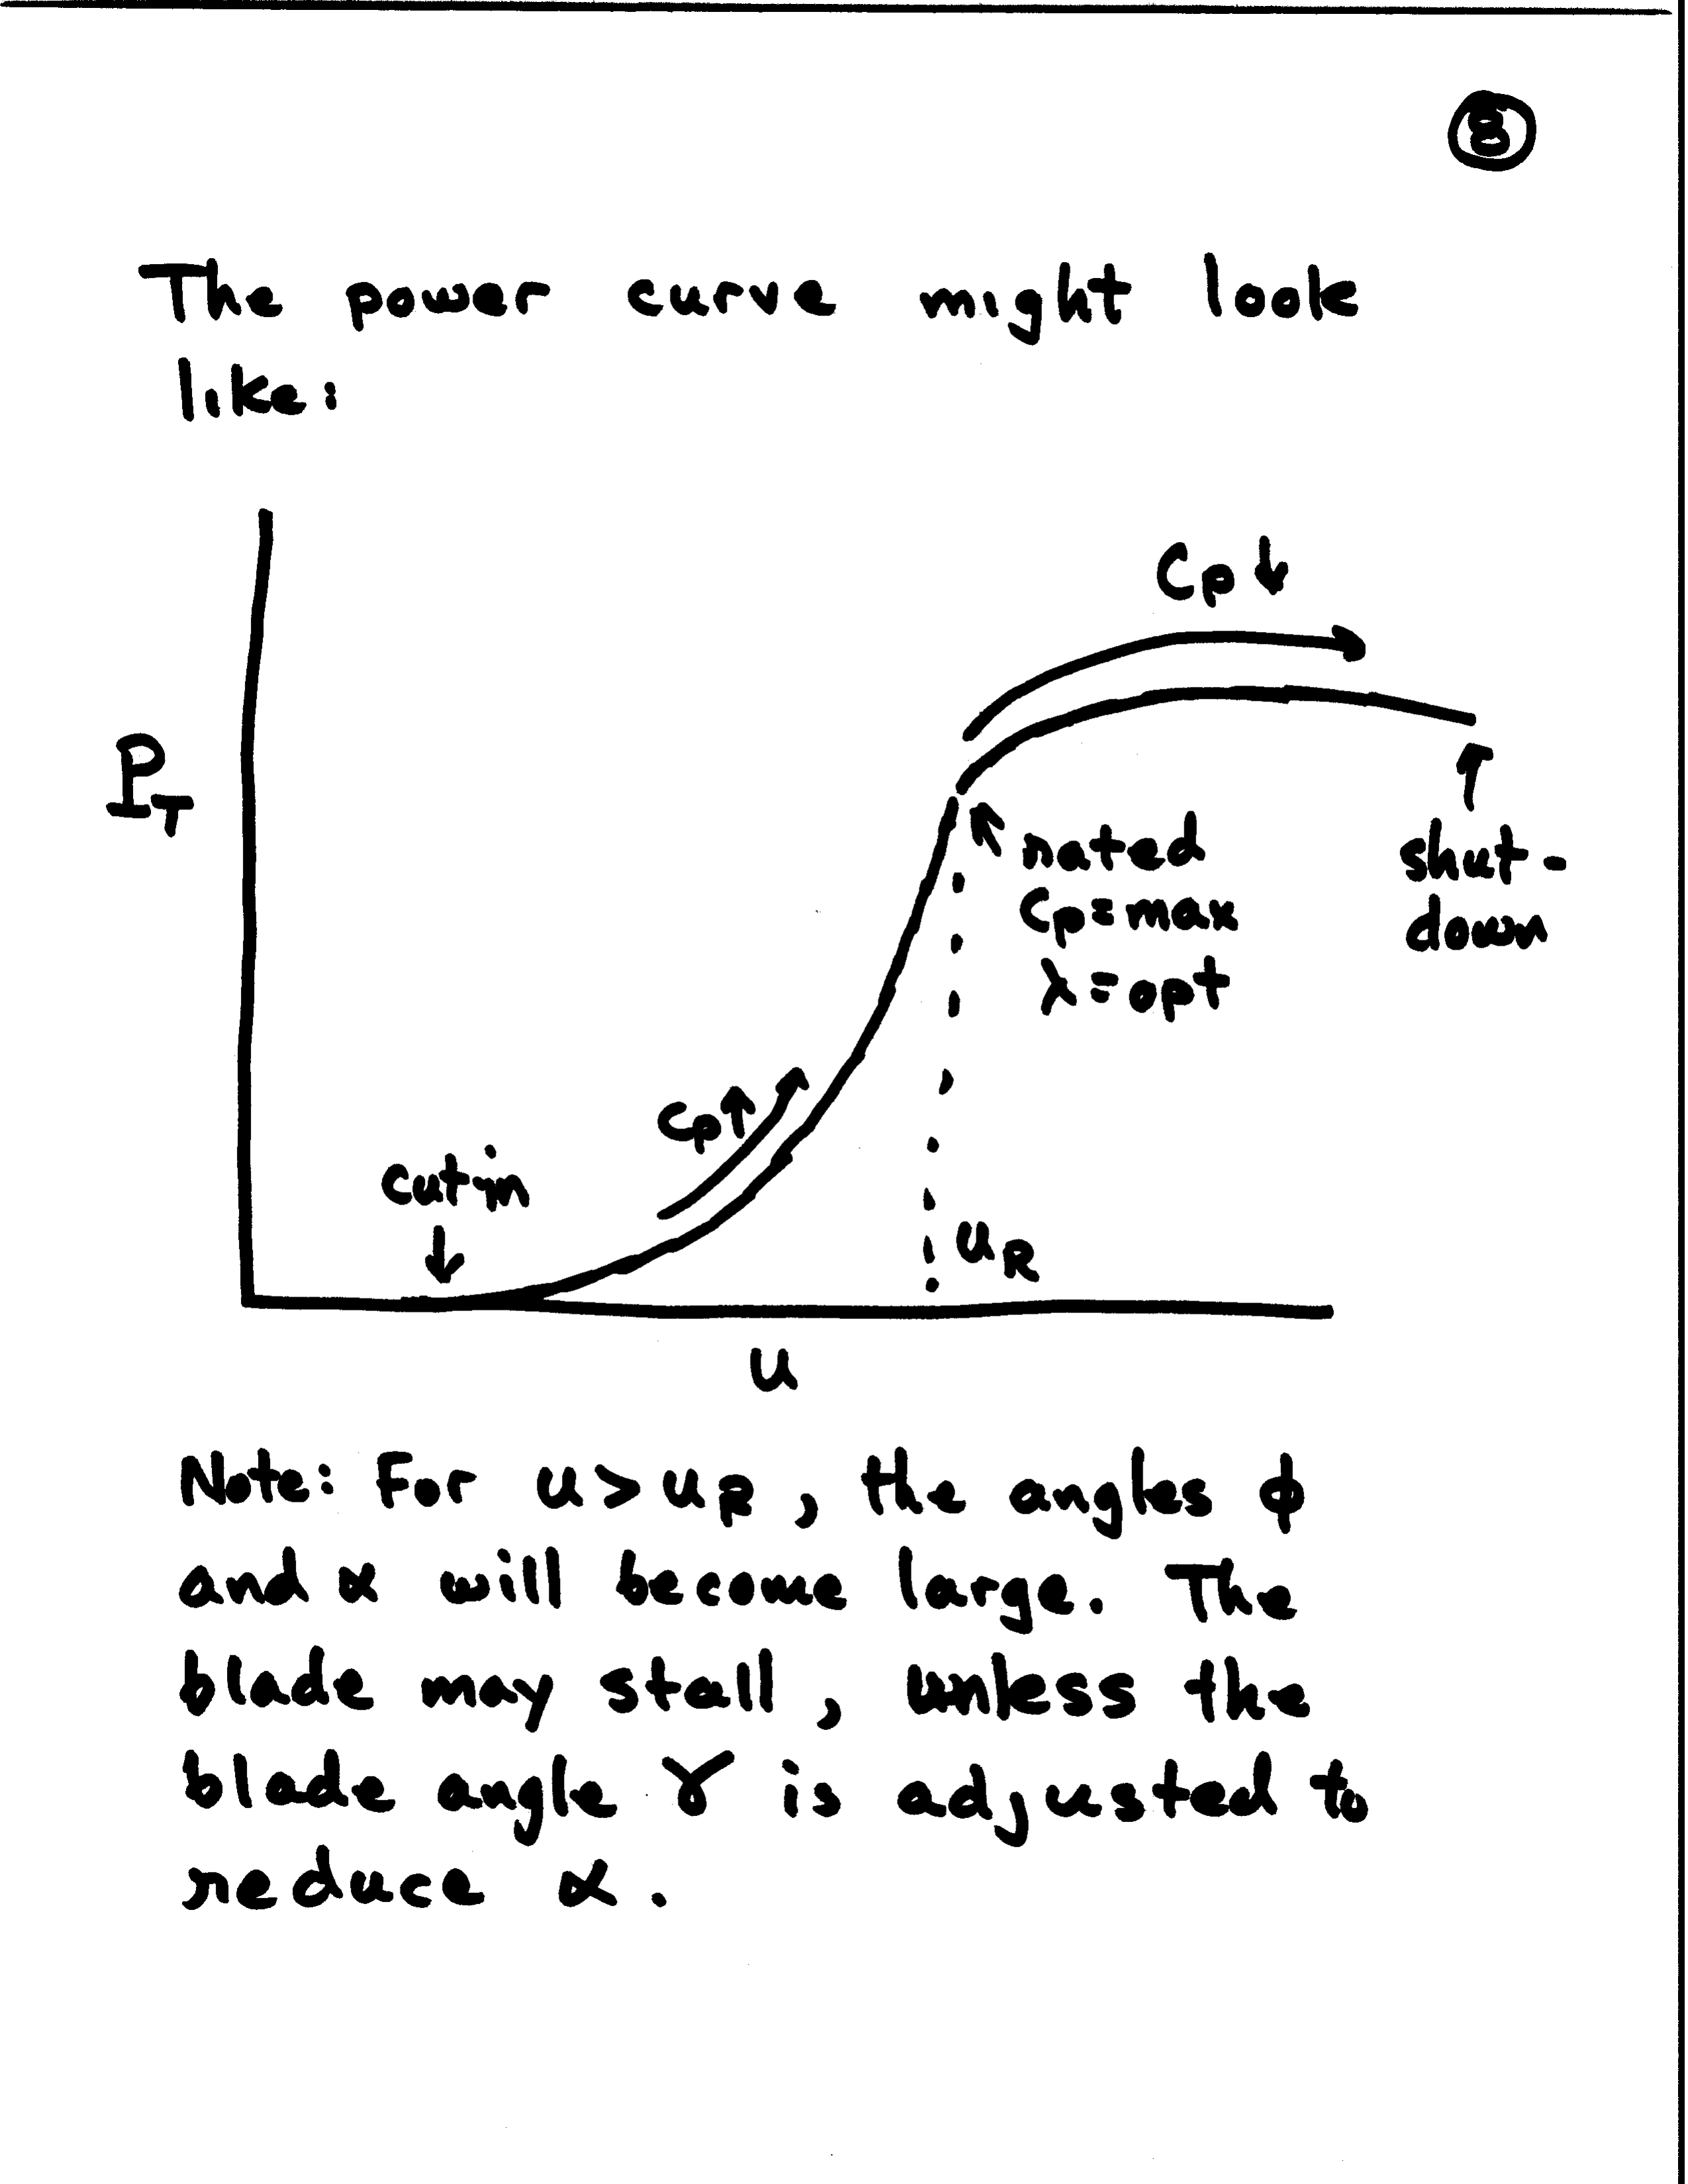 8
The power curve might look
like:
Cp↓
PT
rated
Cp=max
λ=opt
shut-
down
Cp↑
cut-in
uR
u
Note: For u>uR, the angles ϕ
and α will become large. The
blade may stall, unless the
blade angle γ is adjusted to
reduce α.